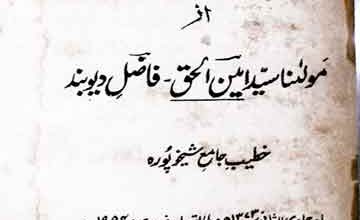 از
مولٰنا سیّد امین الحق - فاضلِ دیوبند
خطیب جامع شیخوپورہ